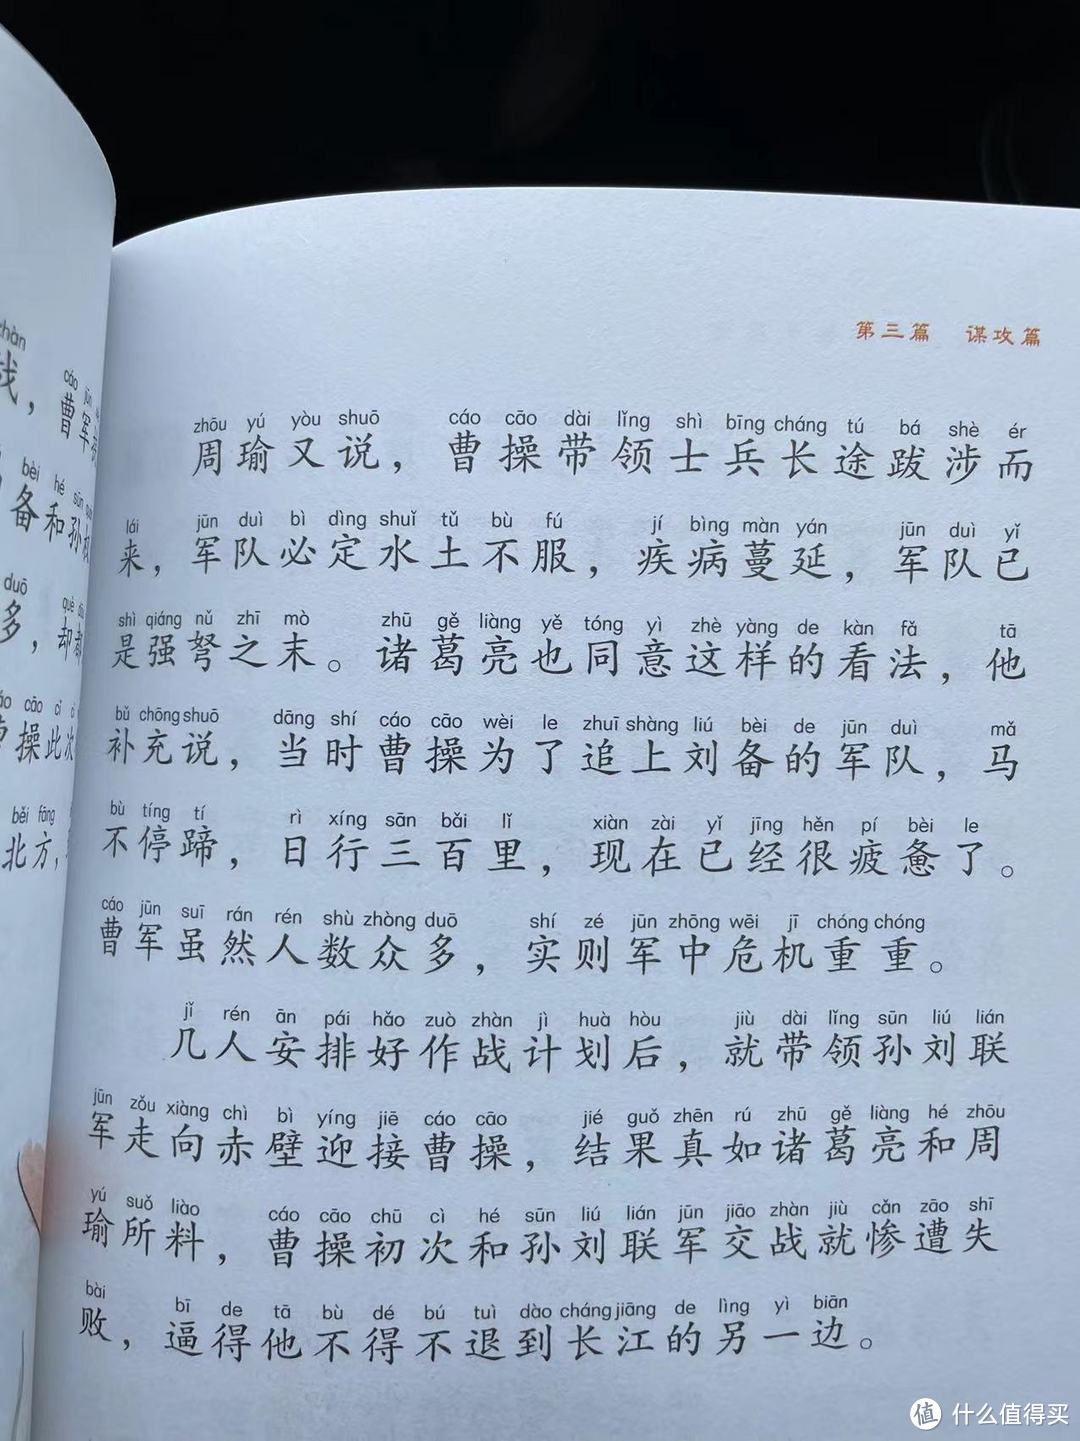 zhàn
cáo jūn
曹军
bèi hé sūn
备和孙
duō què
多，却都
cāo cǐ cì
操此次
běi fāng
北方，
第三篇 谋攻篇
zhōu yú yòu shuō cáo cāo dài lǐng shì bīng cháng tú bá shè ér
周瑜又说，曹操带领士兵长途跋涉而
lái jūn duì bì dìng shuǐ tǔ bù fú jí bìng màn yán jūn duì yǐ
来，军队必定水土不服，疾病蔓延，军队已
shì qiáng nǔ zhī mò zhū gě liàng yě tóng yì zhè yàng de kàn fǎ tā
是强弩之末。诸葛亮也同意这样的看法，他
bǔ chōng shuō dāng shí cáo cāo wèi le zhuī shàng liú bèi de jūn duì mǎ
补充说，当时曹操为了追上刘备的军队，马
bù tíng tí rì xíng sān bǎi lǐ xiàn zài yǐ jīng hěn pí bèi le
不停蹄，日行三百里，现在已经很疲惫了。
cáo jūn suī rán rén shù zhòng duō shí zé jūn zhōng wēi jī chóng chóng
曹军虽然人数众多，实则军中危机重重。
jǐ rén ān pái hǎo zuò zhàn jì huà hòu jiù dài lǐng sūn liú lián
几人安排好作战计划后，就带领孙刘联
jūn zǒu xiàng chì bì yíng jiē cáo cāo jié guǒ zhēn rú zhū gě liàng hé zhōu
军走向赤壁迎接曹操，结果真如诸葛亮和周
yú suǒ liào cáo cāo chū cì hé sūn liú lián jūn jiāo zhàn jiù cǎn zāo shī
瑜所料，曹操初次和孙刘联军交战就惨遭失
bài bī de tā bù dé bú tuì dào cháng jiāng de lìng yì biān
败，逼得他不得不退到长江的另一边。
值 什么值得买